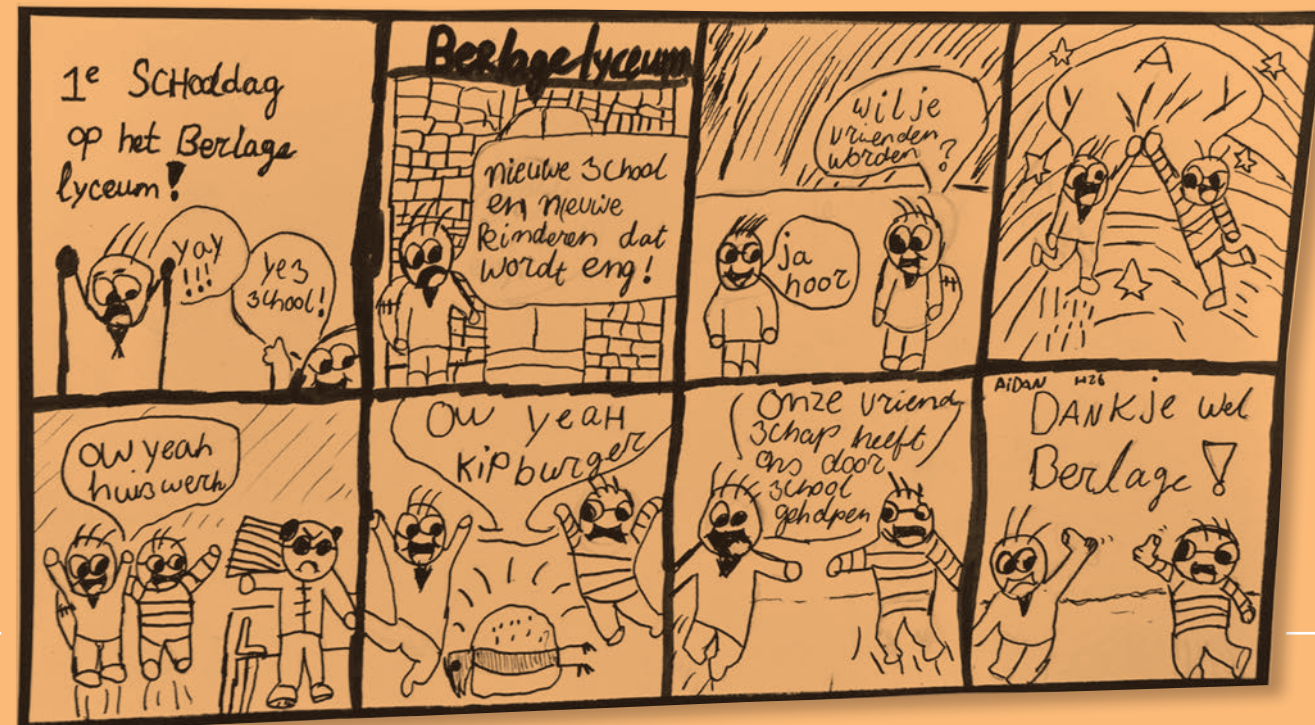 1e SCHooldag
op het Berlage
lyceum!
yay
!!!
yes
school!
Berlage lyceum
nieuwe school
en nieuwe
kinderen dat
wordt eng!
wil je
vrienden
worden ?
ja
hoor
YAY
ow yeah
huiswerk
OW YEAH
KIPburger
Onze vriend
schap heeft
ons door
school
geholpen
AiDAN H2b
DANKje wel
Berlage!